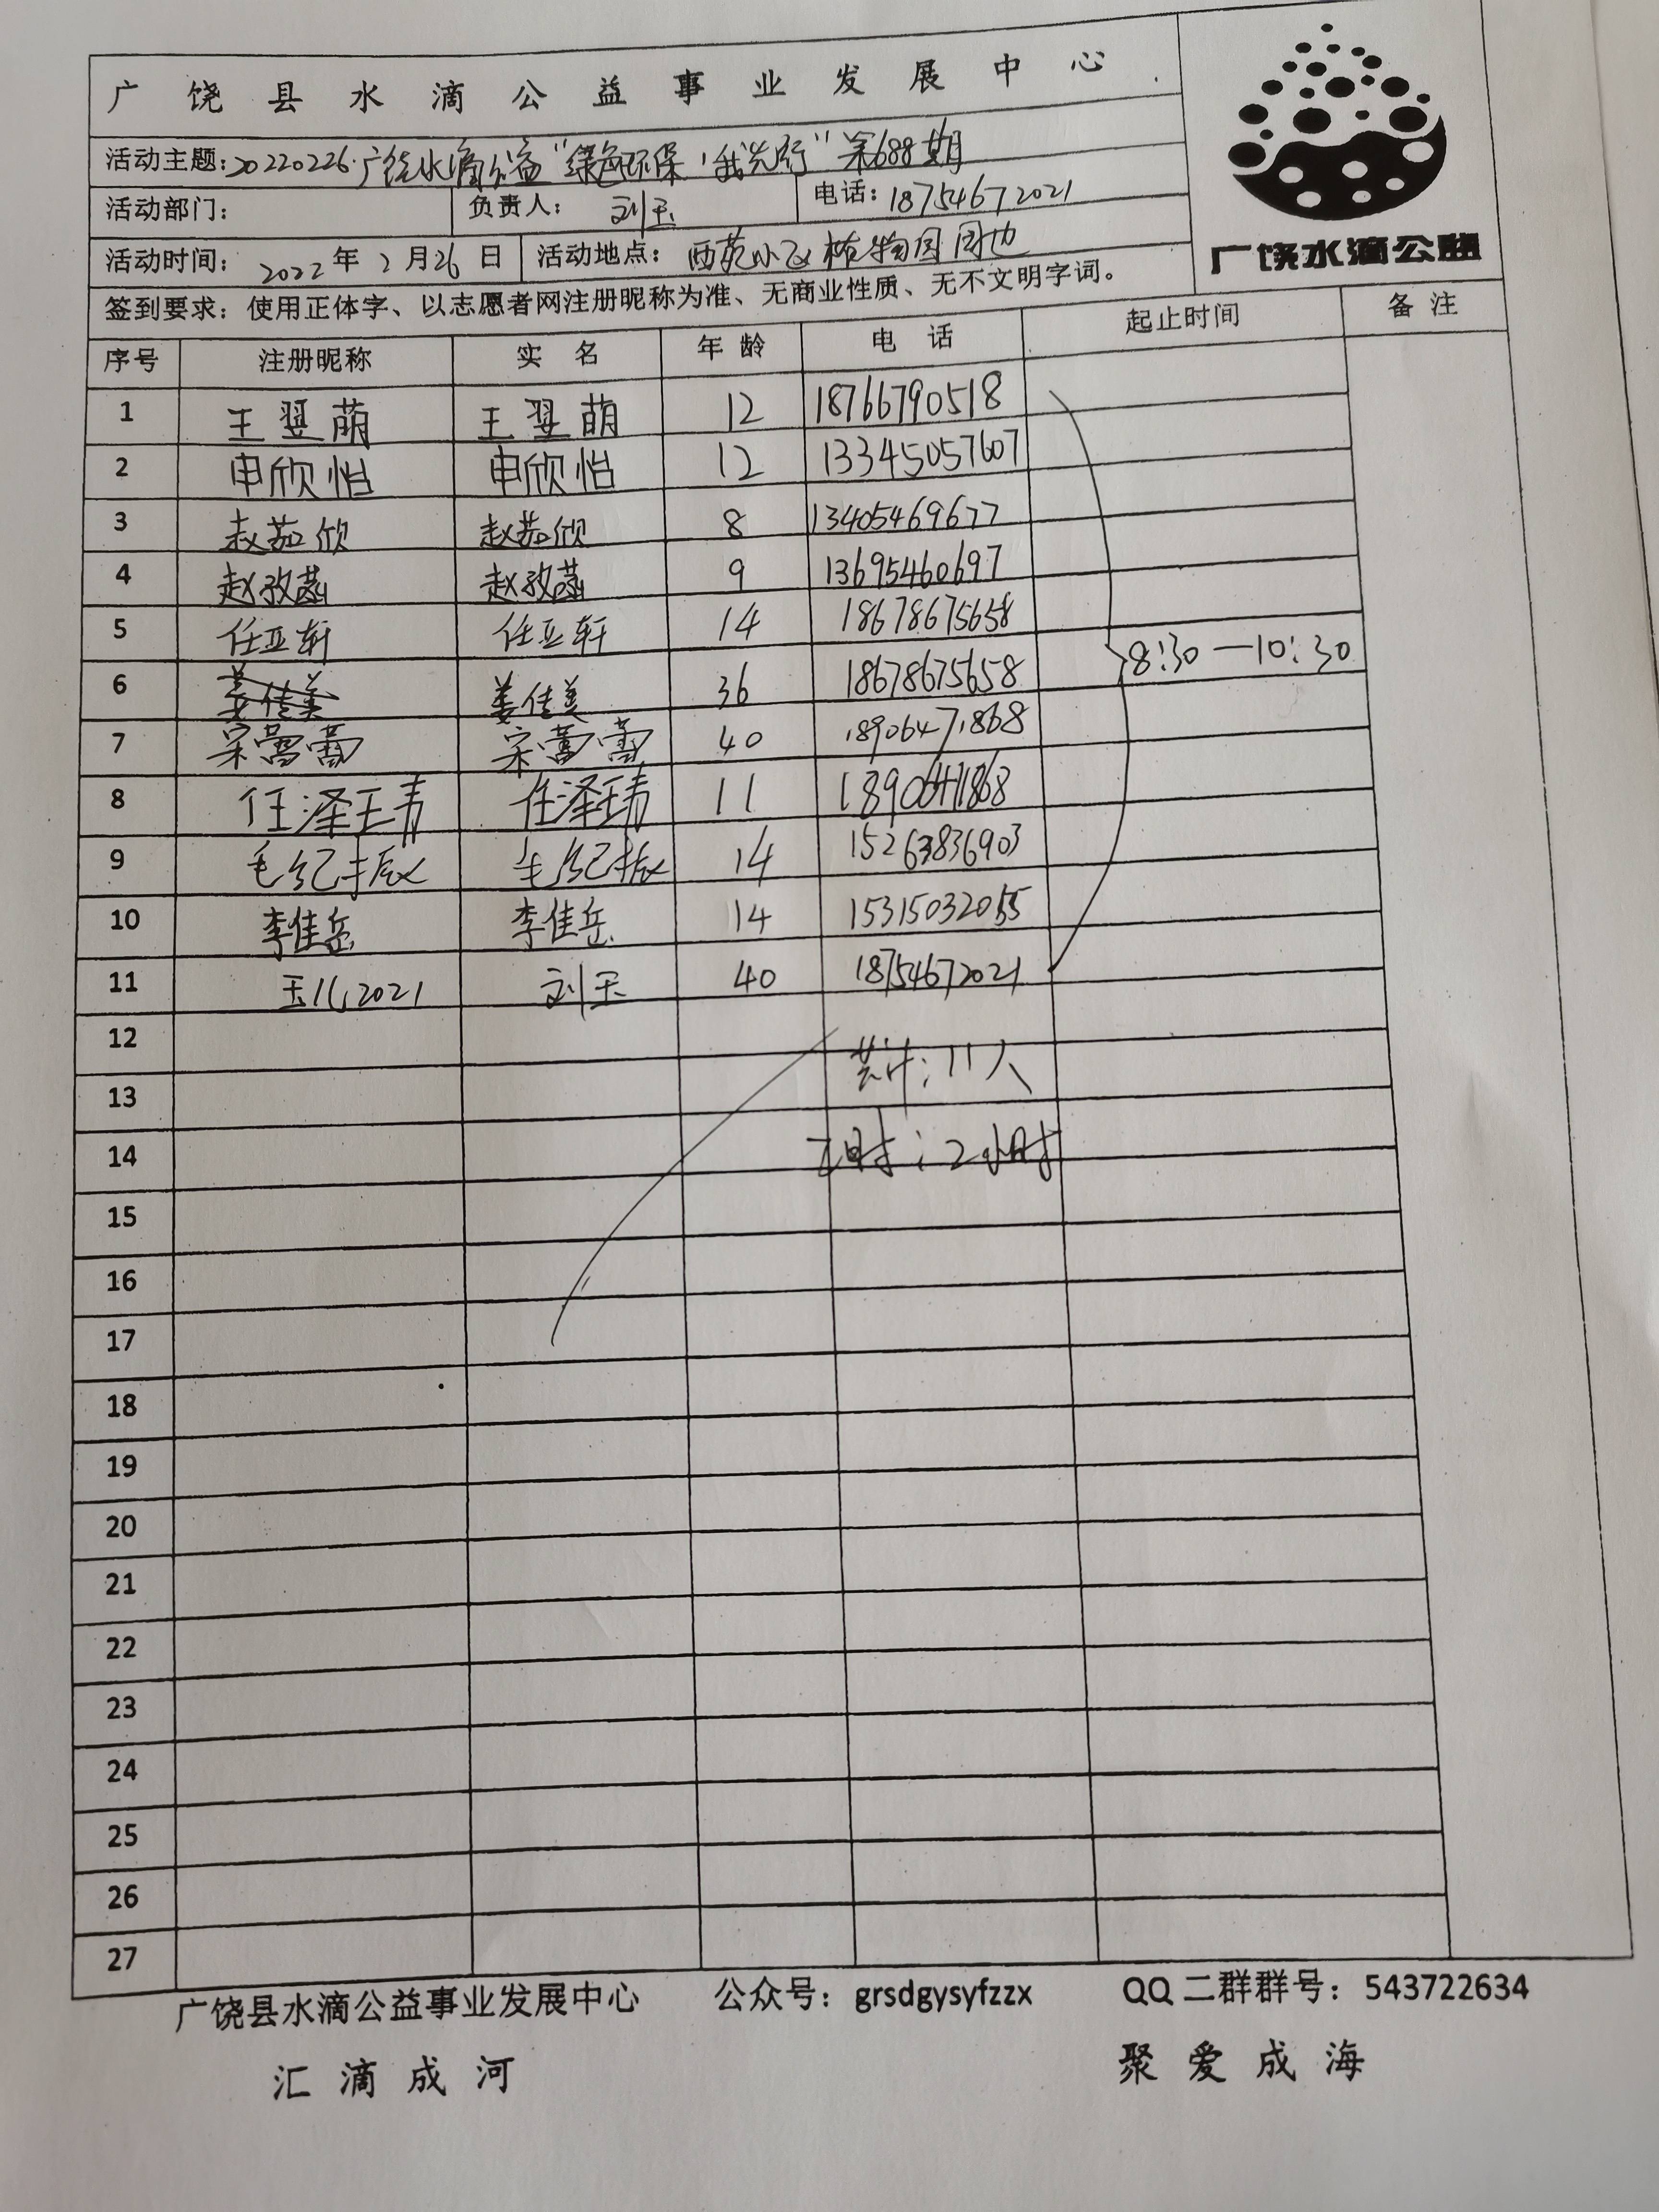 广饶县水滴公益事业发展中心
广饶水滴公益
活动主题:20220226.广饶水滴公益"绿色环保,我先行"第688期
活动部门: 负责人: 刘玉 电话:18754672021
活动时间: 2022年2月26日 活动地点: 西苑小区植物园周边
签到要求:使用正体字、以志愿者网注册昵称为准、无商业性质、无不文明字词。
序号 注册昵称 实名 年龄 电话 起止时间 备注
1 王翌萌 王翌萌 12 18766790518
2 申欣怡 申欣怡 12 13345057607
3 赵茹欣 赵茹欣 8 13405469677
4 赵孜菡 赵孜菡 9 13695460697
5 任立轩 任立轩 14 18678675658
8:30—10:30
6 姜佳美 姜佳美 36 18678675658
7 宋蕾蕾 宋蕾蕾 40 18906471868
8 任泽 任泽 11 18906471868
9 毛纪振 毛纪振 14 15263836903
10 李佳岳 李佳岳 14 15315032055
11 玉儿2021 刘玉 40 18754672021
12
共计:11人
13
14 工时:2小时
15
16
17
18
19
20
21
22
23
24
25
26
27
广饶县水滴公益事业发展中心 公众号:grsdgysyfzzx QQ二群群号:543722634
汇滴成河 聚爱成海